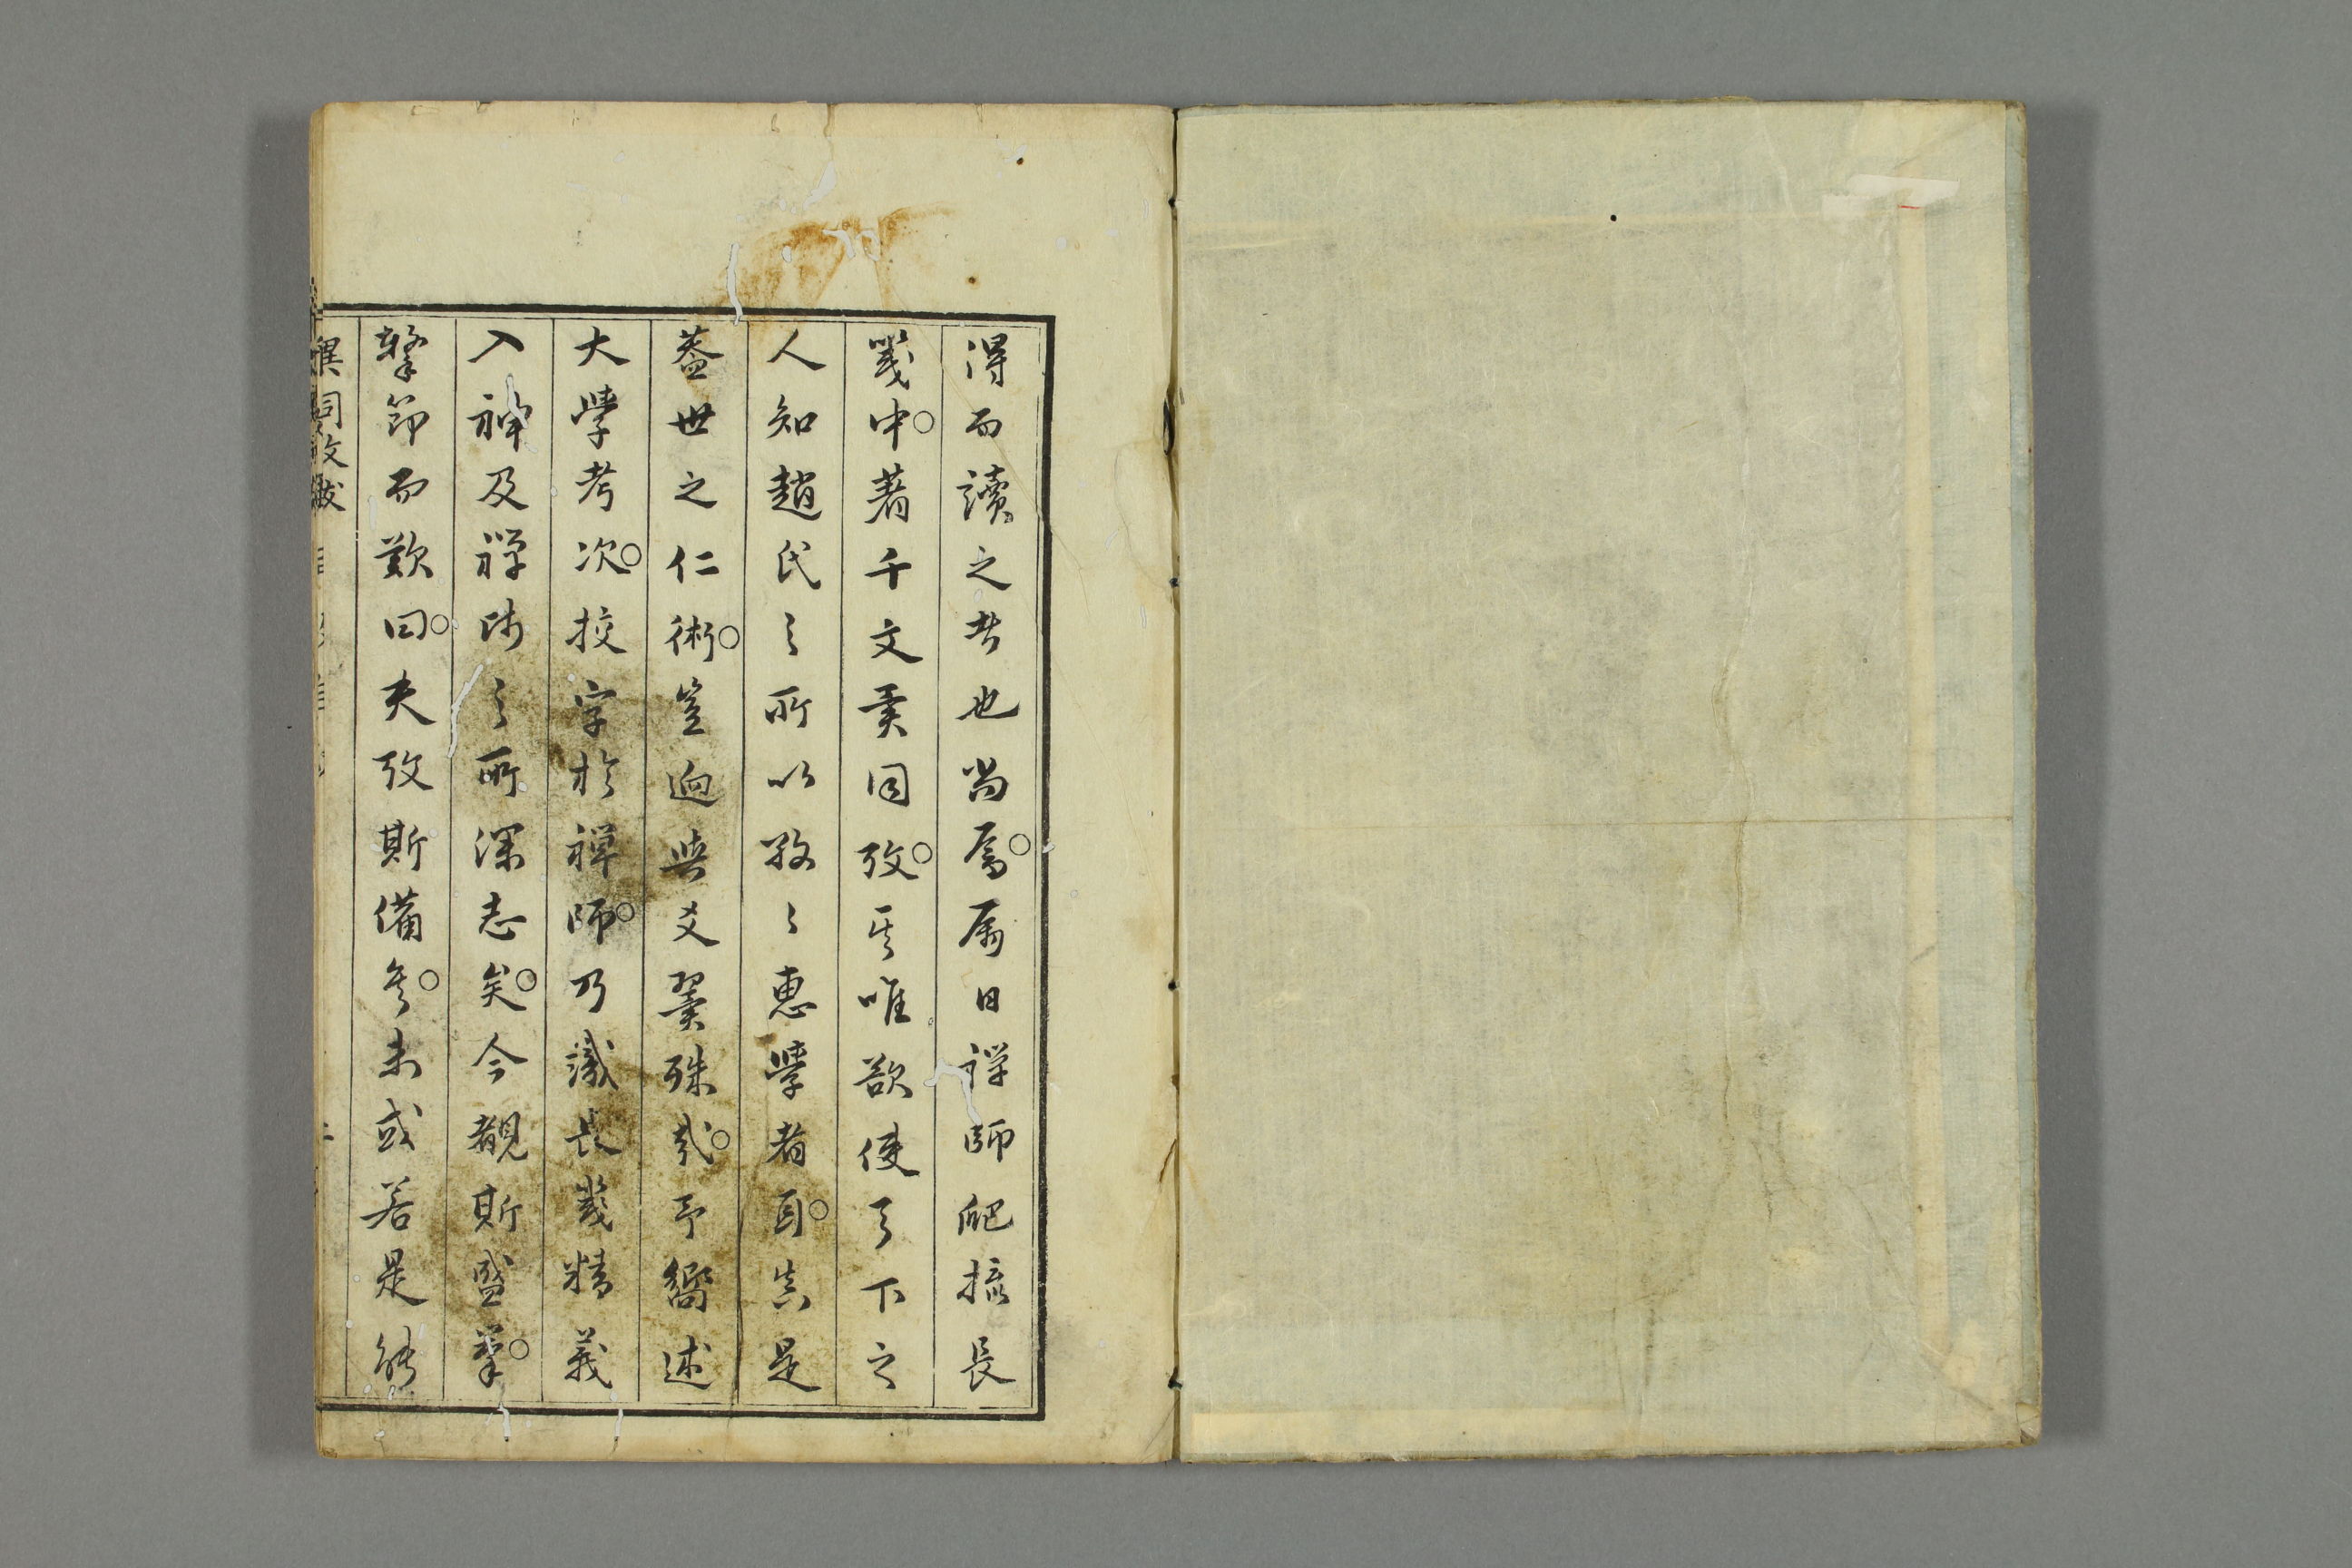 得而讀之者也尚焉屬日禅師爬採長
箋中著千文異同攷其唯欲使天下之
人知趙氏之所以孜々惠學者耳真是
葢世之仁術豈逈與爻翼殊哉予嚮述
大學考次挍字於禅師乃識長箋精義
入神及禅師之所深志矣今覩斯盛舉
擊節而歎曰夫攷斯備矣未或若是能
異同攷跋